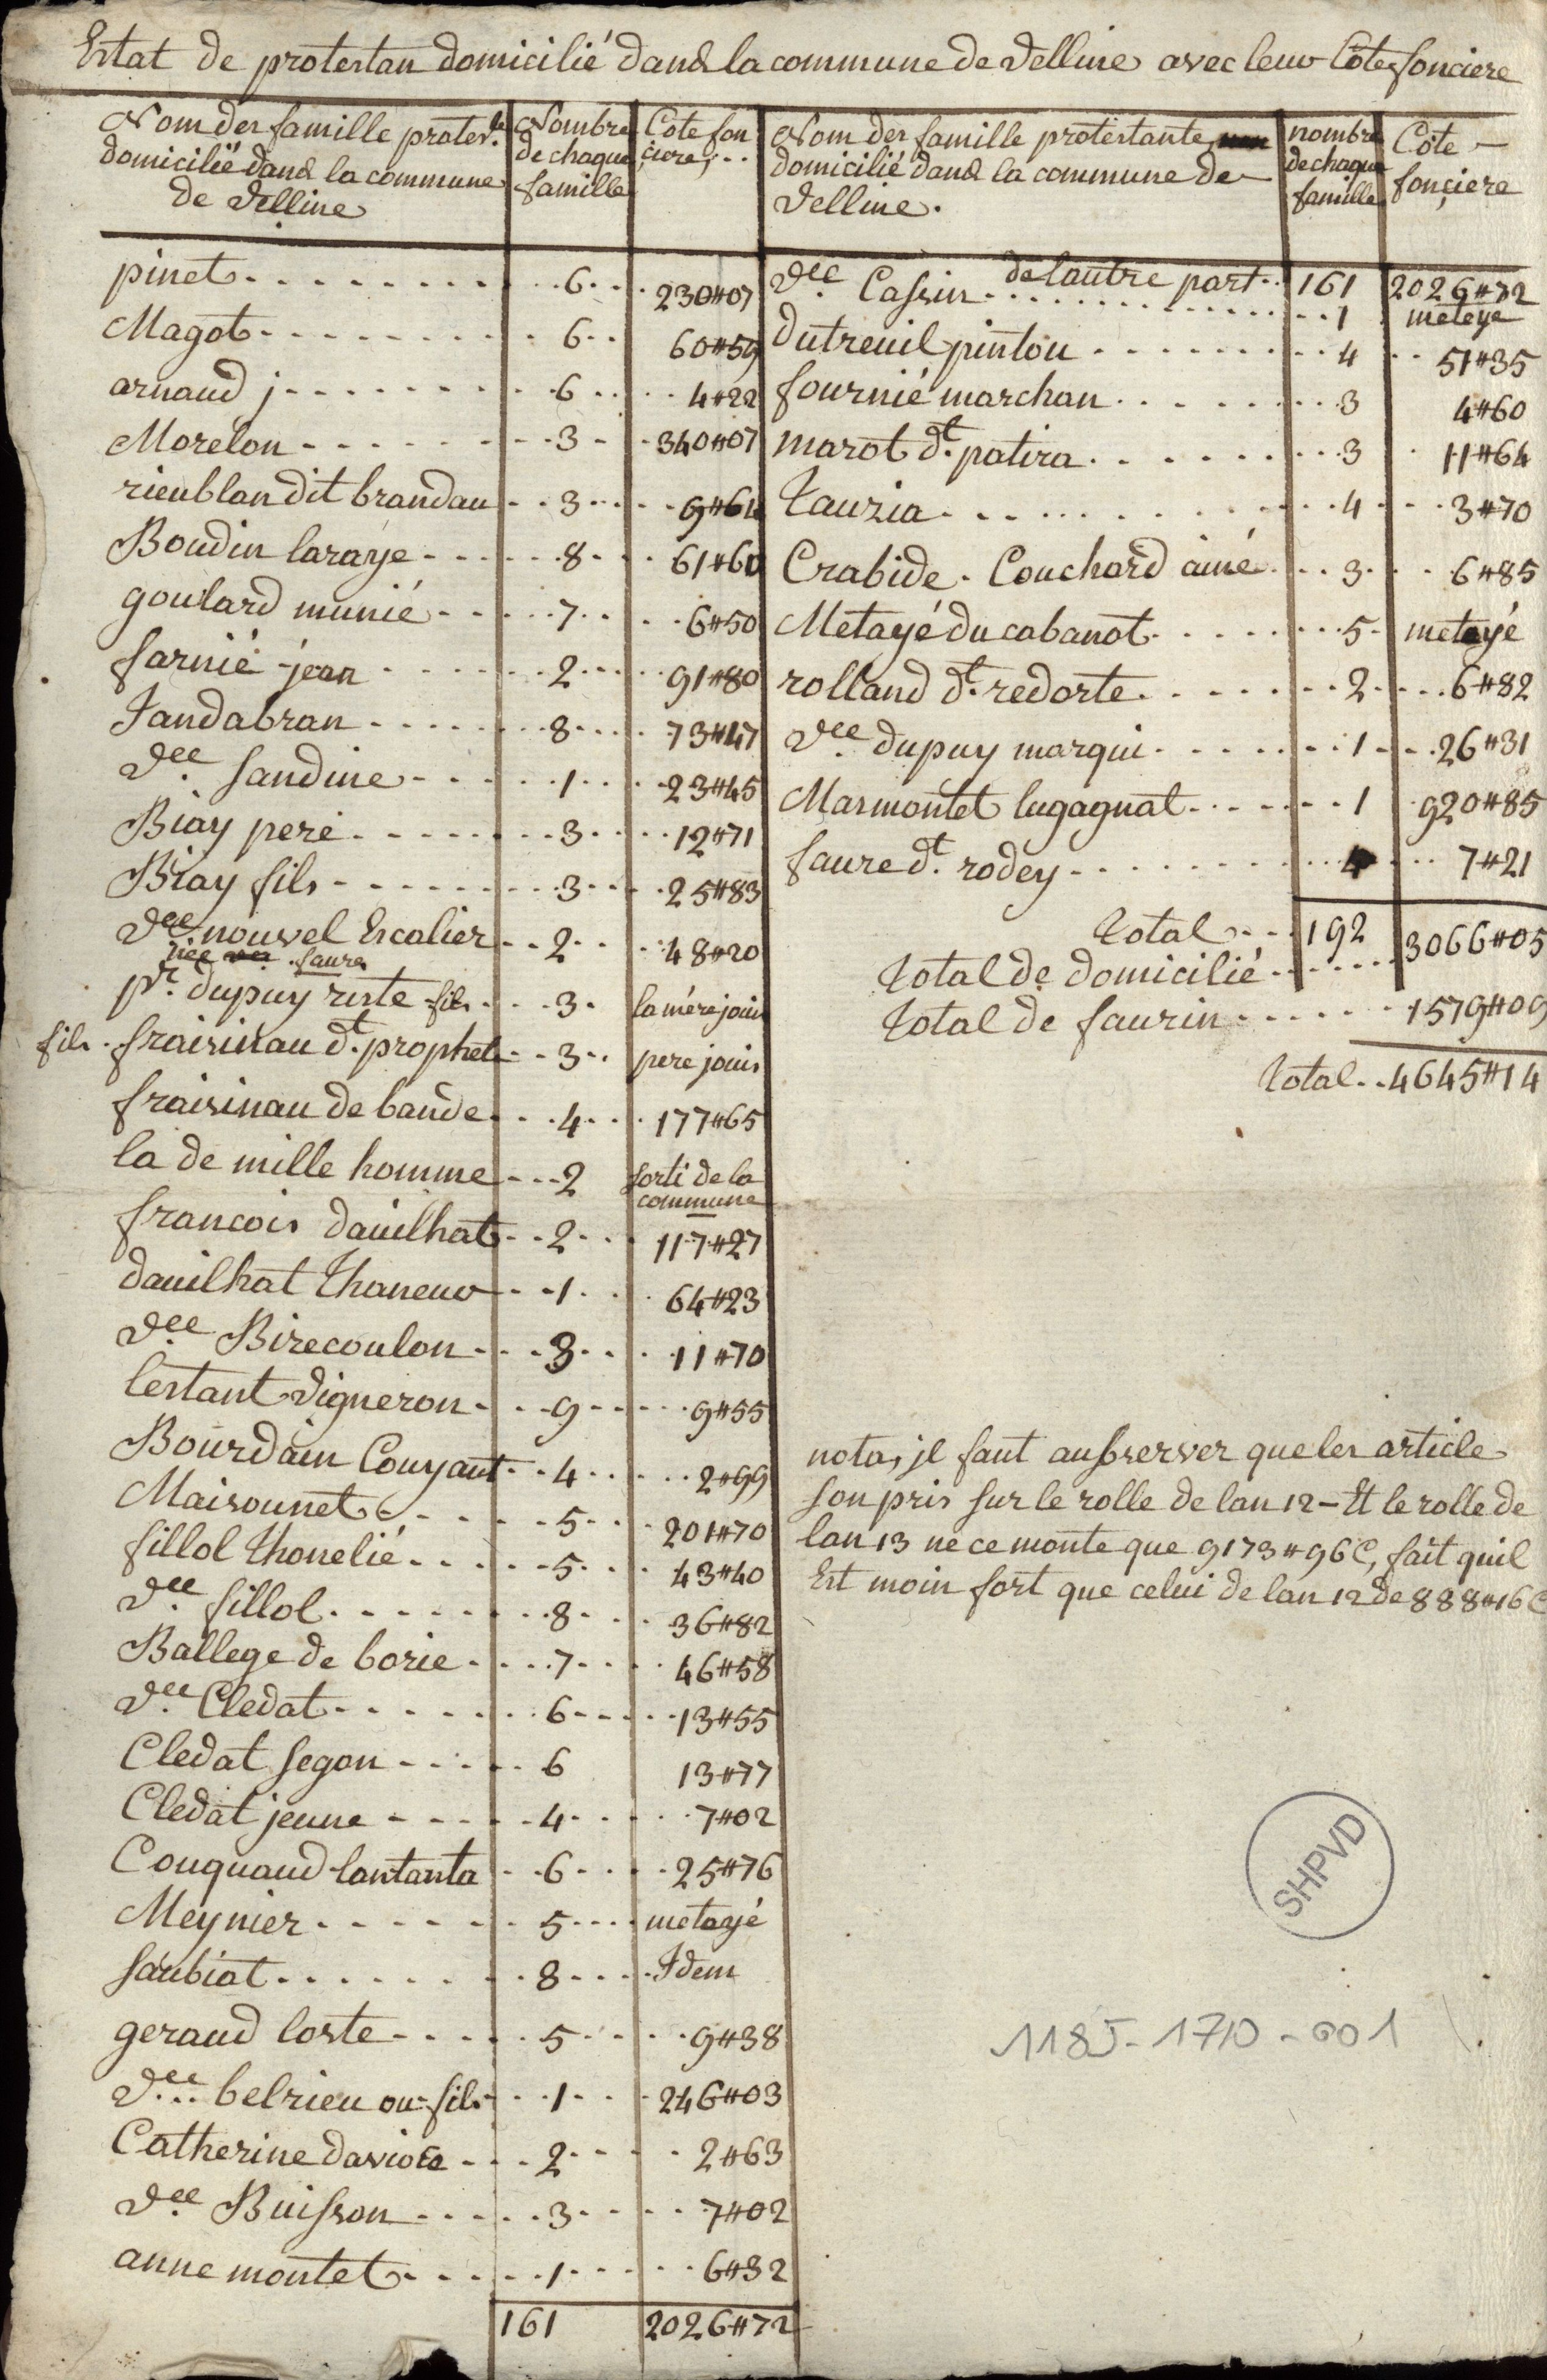 Estat de protestan domicilié dans la commune de Velline avec leur Côte fonciere
Nom des famille protes.te
domicilié dans la commune
de Velline
Nombre
de chaque
famille
Cote fon
ciere
pinet 6 230#07
Magot 6 60#59
arnaud j 6 4#22
Morelon 3 340#07
rieublan dit brandau 3 9#64
Boudin laraye 8 61#60
goulard munié 7 6#50
farnié jean 2 91#80
Jandabran 8 73#47
Vee Sandine 1 23#45
Biay pere 3 12#71
Biay fils 3 25#83
Vee nouvel Escalier 2 48#20
née faure
pr. dupuy reste fils 3 la mére jouis
fils fraisinau dt. prophete 3 pere jouis
fraisinau de baude 4 177#65
la de mille homme 2 sorti de la
commune
francois dauilhat 2 117#27
dauilhat Thaneur 1 64#23
Vee Birecoulon 3 11#70
lestant Vigneron 9 9#55
Bourdain Couyant 4 2#99
Maisonnet 5 201#70
fillol Thonelié 5 43#40
Vee fillol 8 36#82
Ballege de borie 7 46#58
Vee Cledat 6 13#55
Cledat segon 6 13#77
Cledat jeune 4 7#02
Couquaud lantanta 6 25#76
Meynier 5 metayé
Saubiat 8 Idem
geraud loste 5 9#38
Vee belrieu ou fils 1 246#03
Catherine daviote 2 2#63
Vee Buisson 3 7#02
anne montet 1 6#32
161 2026#72
Nom des famille protestante
domicilié dans la commune de
Velline.
nombre
de chaque
famille
Côte
fonçiere
de lautre part 161 2026#72
Vee Cassin 1 meteye
dutreuil pintou 4 51#35
fournié marchan 3 4#60
marot dt. patira 3 11#64
Tauzia 4 3#70
Crabide. Couchard ainé 3 6#85
Metayé du cabanot 5 metayé
rolland dt. redorte 2 6#82
Vee dupuy marqui 1 26#31
Marmontet lugagnat 1 920#85
faure dt. rodey 4 7#21
total 192 3066#05
total de domicilié
total de faurin 1579#09
total 4645#14
nota, jl faut aubserver que les article
son pris sur le rolle de lan 12 - Et le rolle de
lan 13 ne ce monte que 9173#96C, fait quil
Est moin fort que celui de lan 12 de 888#16C
SHPVD
118J-1710-001